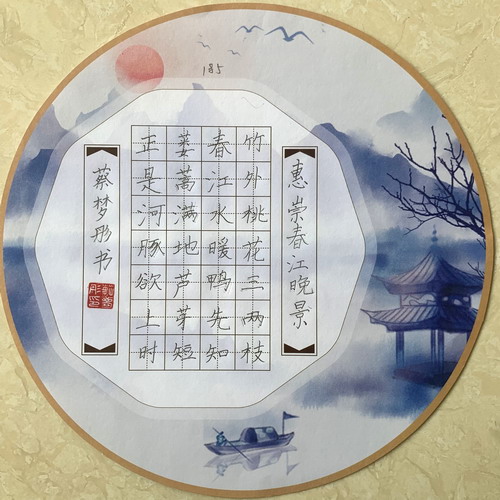 185
惠崇春江晚景
竹外桃花三两枝
春江水暖鸭先知
蒌蒿满地芦芽短
正是河豚欲上时
蔡梦彤书